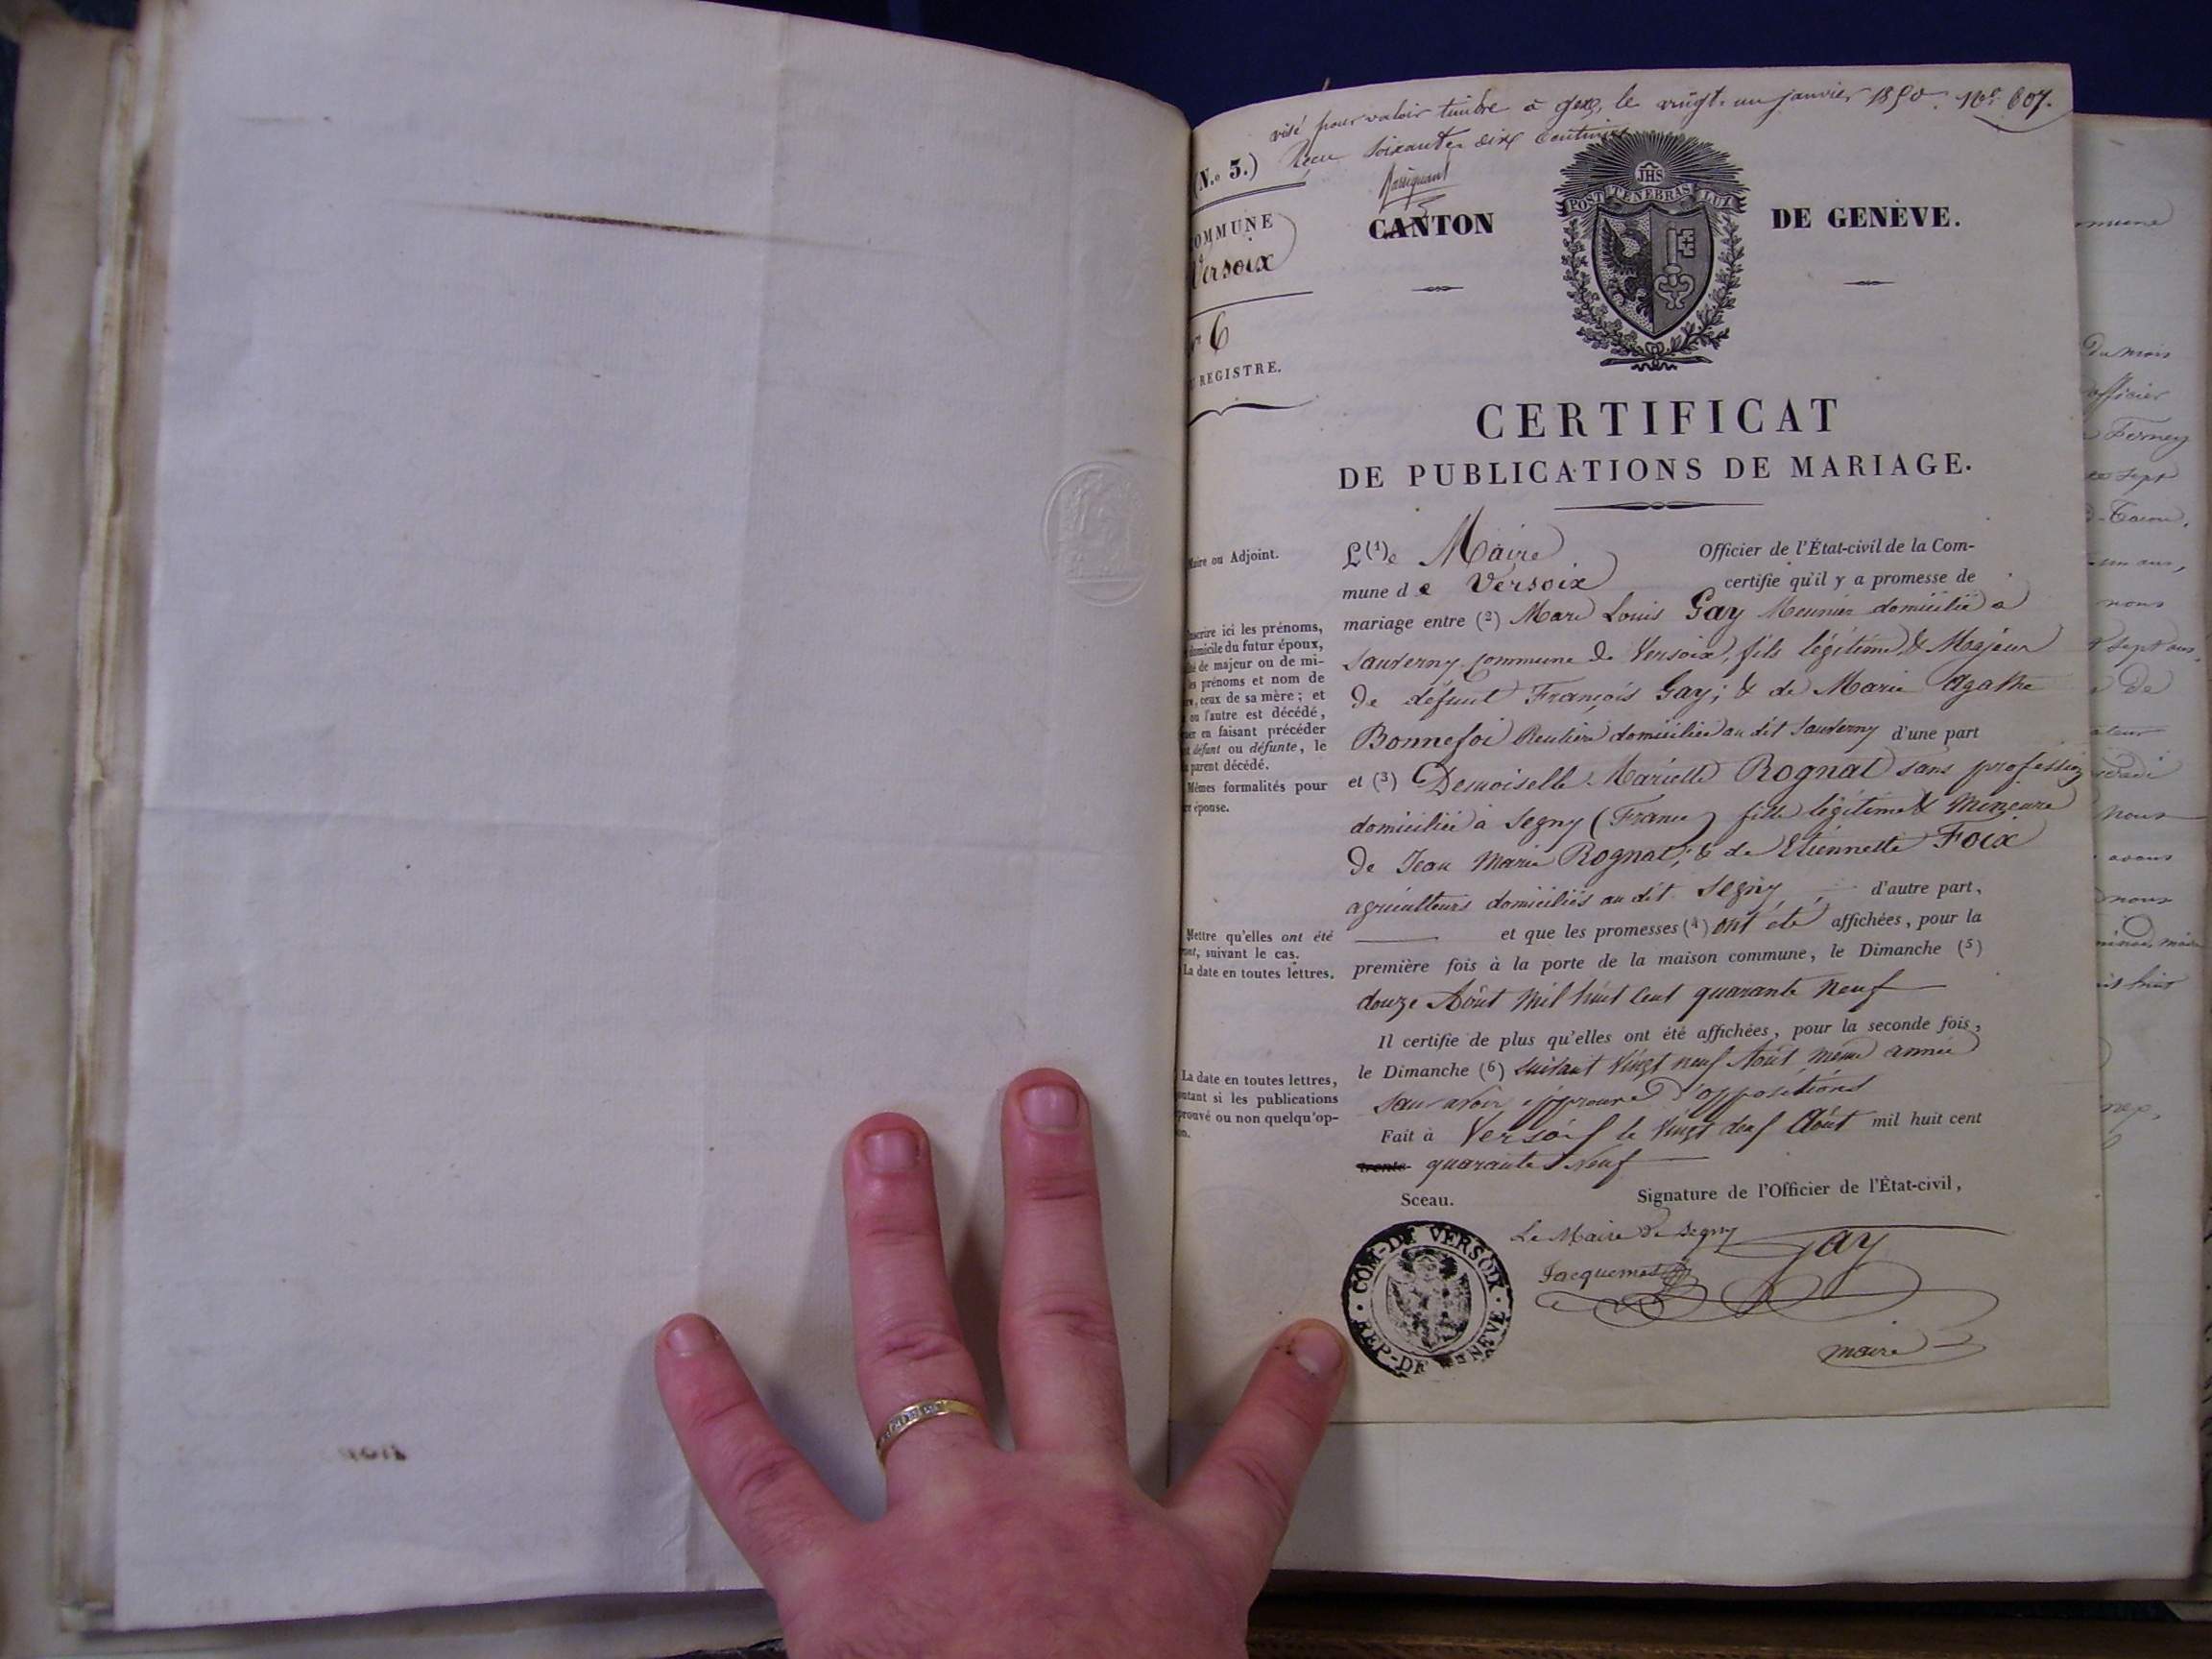 visé pour valoir timbre à Gex, le vingt-un janvier 1850. 607.
Reçu soixante dix centimes
(N.o 3.)
JHS
POST TENEBRAS LUX
CANTON DE GENÈVE.
COMMUNE
Versoix
6
REGISTRE.
CERTIFICAT
DE PUBLICATIONS DE MARIAGE.
Maire ou Adjoint.
L(1)e Maire Officier de l'État-civil de la Com-
mune de Versoix certifie qu'il y a promesse de
mariage entre (2) Marc Louis Gay Meunier domicilié à
Sauverny commune de Versoix, fils légitime & Majeur
de défunt François Gay; & de Marie Agathe
Bonnefoi Rentière domiciliée au dit Sauverny d'une part
et (3) Demoiselle Mariette Rognat sans profession
domiciliée à Segny (France) fille légitime & Mineure
de Jean Marie Rognat; & de Etiennette Foix
agriculteurs domiciliés au dit Segny, d'autre part,
et que les promesses (4) ont été affichées, pour la
première fois à la porte de la maison commune, le Dimanche (5)
douze Août mil huit cent quarante neuf
Il certifie de plus qu'elles ont été affichées, pour la seconde fois,
le Dimanche (6) suivant vingt neuf Août même année
sans avoir éprouvé d'oppositions
Fait à Versoix le vingt Août mil huit cent
trente quarante Neuf
Inscrire ici les prénoms,
domicile du futur époux,
de majeur ou de mi-
les prénoms et nom de
ceux de sa mère; et
ou l'autre est décédé,
en faisant précéder
défunt ou défunte, le
parent décédé.
Mêmes formalités pour
épouse.
Mettre qu'elles ont été
suivant le cas.
La date en toutes lettres.
La date en toutes lettres,
si les publications
ou non quelqu'op-
Sceau. Signature de l'Officier de l'État-civil,
COM-DE VERSOIX
REP-DE GENÈVE
Le Maire de Segny
Jacquemet
Gay
maire
mune
Du mois
officier
Ferney
sept
nous
sept ans,
de
nous
avons
nous